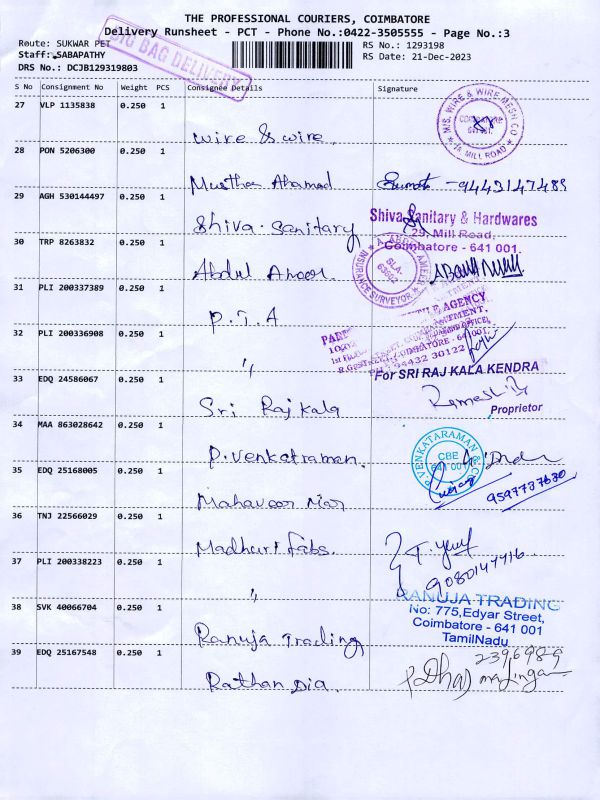 THE PROFESSIONAL COURIERS, COIMBATORE
Delivery Runsheet - PCT - Phone No.:0422-3505555 - Page No.:3
Route: SUKWAR PET
BIG BAG DELIVERY
RS No.: 1293198
Staff: SABAPATHY
RS Date: 21-Dec-2023
DRS No.: DCJB129319803
S No Consignment No Weight PCS Consignee Details Signature
27 VLP 1135838 0.250 1
wire & wire
M/S. WIRE & WIRE MESH CO
COIMBATORE
MILL ROAD
28 PON 5206300 0.250 1
Musthas Ahamad
9443147489
29 AGH 530144497 0.250 1
Shiva Sanitary
Shiva Sanitary & Hardwares
29, Mill Road,
Coimbatore - 641 001.
30 TRP 8263832 0.250 1
Abdul
INSURANCE SURVEYOR
SLA-
31 PLI 200337389 0.250 1
P.T.A
AGENCY
32 PLI 200336908 0.250 1
"
COIMBATORE - 641 001
94432 30122
33 EDQ 24586067 0.250 1
Sri Rajkala
For SRI RAJ KALA KENDRA
Proprietor
34 MAA 863028642 0.250 1
P. Venkatraman.
P. VENKATARAMAN & CO
CBE
641 001
35 EDQ 25168005 0.250 1
9597737630
36 TNJ 22566029 0.250 1
Madhuri Fabs.
37 PLI 200338223 0.250 1
"
9080147416
38 SVK 40066704 0.250 1
Ranuja Trading
RANUJA TRADING
No: 775, Edyar Street,
Coimbatore - 641 001
TamilNadu
39 EDQ 25167548 0.250 1
Rathan Dia.
2396989